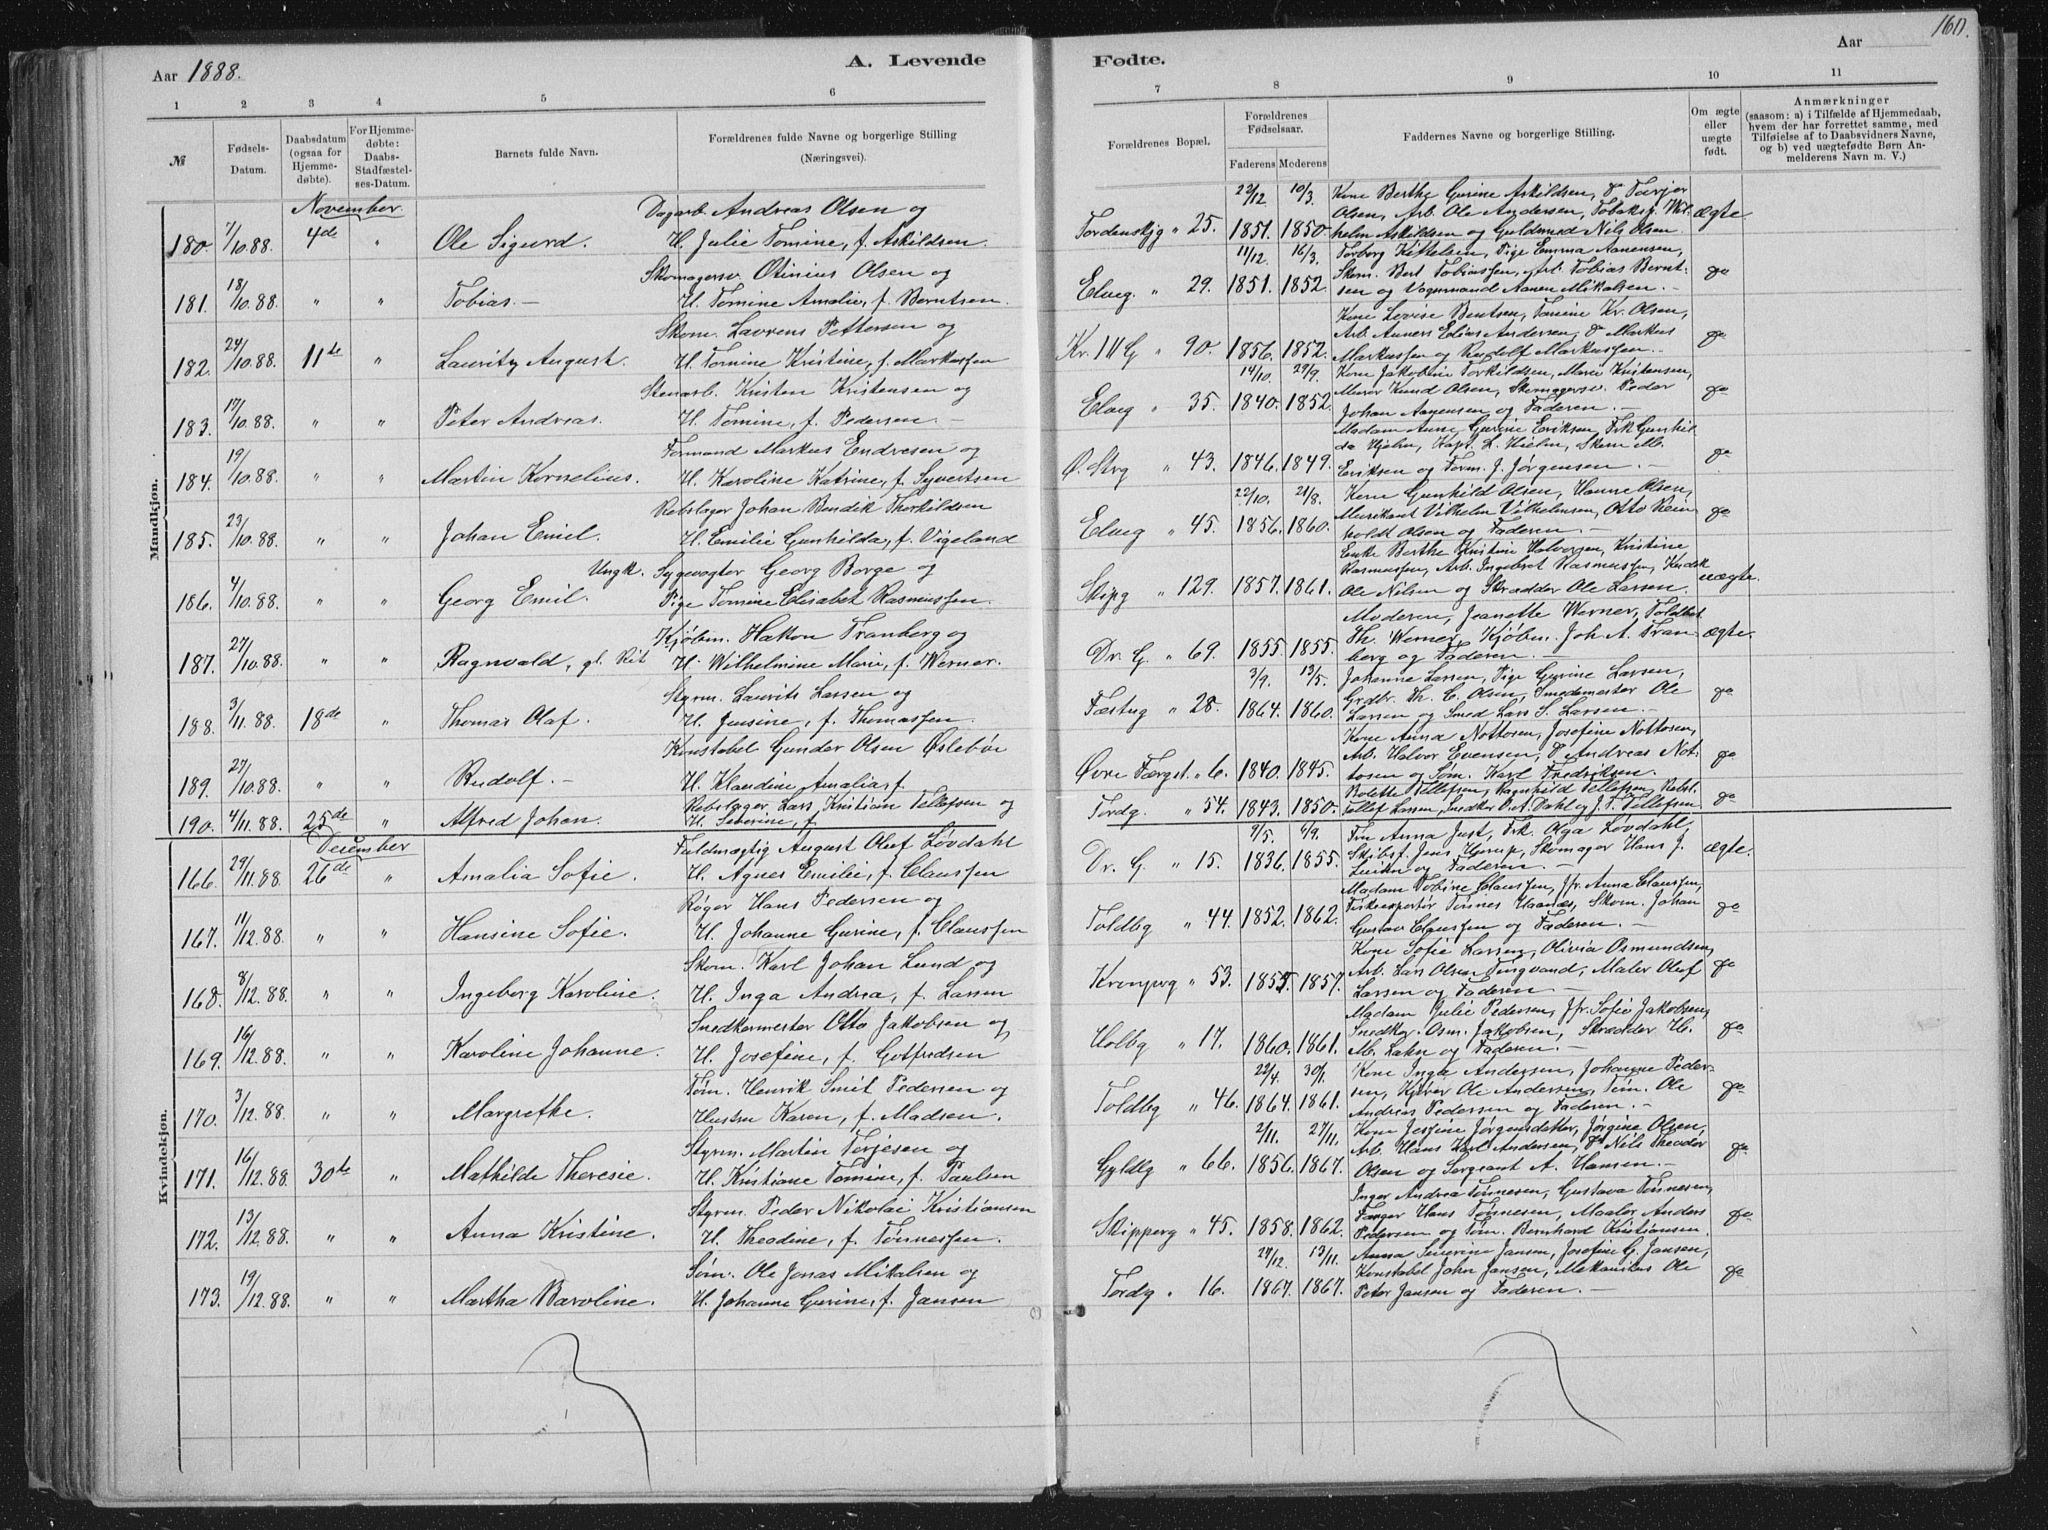 160.
Aar 1888.
A. Levende
Fødte.
Aar
1 2 3 4 5 6
7 8 9 10 11
№
Fødsels-Datum.
Daabsdatum (ogsaa for Hjemme-døbte).
For Hjemme-døbte: Daabs-Stadfæstel-ses-Datum.
Barnets fulde Navn.
Forældrenes fulde Navne og borgerlige Stilling (Næringsvei).
Forældrenes Bopæl.
Forældrenes Fødselsaar.
Faderens Moderens
Faddernes Navne og borgerlige Stilling.
Om ægte eller uægte født.
Anmærkninger
(saasom: a) i Tilfælde af Hjemmedaab, hvem der har forrettet samme, med Tilføielse af to Daabsvidners Navne, og b) ved uægtefødte Børn An-melderens Navn m. V.)
November
Mandkjøn.
Dagarb. Andreas Olsen og
22/12 10/3. Kone Berthe Gurine Askildsen, do Tarjer
Olsen, Arb. Ole Andersen, Tobaksp. Wil-
180. 7/10.88. 4de " Ole Sigurd. H. Julie Tomine, f. Askildsen.
Tordenskjg " 25. 1851. 1850. helm Askildsen og Guldsmed Nils Olsen. ægte.
Skomagersv. Otinius Olsen og
11/12. 16/3. Torborg Kittelsen, Pige Emma Aanensen,
Skom. Bert Tobiassen, Arb. Tobias Bernt-
181. 18/10.88. " " Tobias. — H. Tomine Amalie, f. Berntsen.
Elveg. " 29. 1851. 1852. sen og Vognmand Aanen Mikalsen. — do
Skom. Lavrens Pettersen og
Kone Lovise Bentsen, Tomine Kr. Olsen,
Arb. Anners Edias Andersen, do Markus
182. 24/10.88. 11te " Lauritz August. H. Tomine Kristine, f. Markussen
Kr. III G " 90. 1856. 1852. Markussen og Rudolf Markussen. do
Stenarb. Kristen Kristensen og
14/10. 29/9. Kone Jakobine Torkildsen, Marie Kristensen,
Murer Knud Olsen, Skomagersv. Peder
183. 17/10.88. " " Peter Andreas. H. Tomine, f. Pedersen. —
Elveg " 35. 1840. 1852. Johan Aanensen og Faderen. — do
Formand Markus Endresen og
Madam Anne Gurine Eriksen, Frk Gunhil-
da Hjelm, Kapt. L. Hjelm, Skom M.
184. 19/10.88. " " Martin Kornelius. H. Karoline Katrine, f. Syvertsen
Ø. Strg " 43. 1846. 1849. Eriksen og Form. J. Jørgensen. — do
Rebslager Johan Bendik Thorkildsen
22/10. 21/8. Kone Gunhild Olsen, Hanne Olsen,
Musikant Vilhelm Vilhelmsen, Otto Rein-
185. 23/10.88. " " Johan Emil. H. Emilie Gunhilda, f. Vigeland
Elveg " 45. 1856. 1860. holdt Olsen og Faderen. — do
Ungk. Sygevogter Georg Borge og
Enke Berthe Kristine Halvorsen, Kristine
Rasmussen, Arb. Ingebret Rasmussen, Kudsk
186. 4/10.88. " " Georg Emil. Pige Tomine Elisabet Rasmussen.
Skipg " 129. 1857. 1861. Ole Nilsen og Skrædder Ole Larsen. uægte.
Kjøbm. Hakon Tranberg og
Moderen, Jeanette Werner, Toldbet.
Th. Werner, Kjøbm. Joh A. Tran-
187. 27/10.88. " " Ragnvald, gl. Rit H. Wilhelmine Marie, f. Werner.
Dr. G. " 69. 1855. 1855. berg og Faderen. — ægte.
Styrm. Laurits Larsen og
3/9. 13/5. Johanne Larsen, Pige Gurine Larsen,
Grdbr. Th. C. Olsen, Smedemester Ole
188. 3/11.88. 18de " Thomas Olaf. H. Jensine, f. Thomassen.
Fæstng " 28. 1864. 1860. Larsen og Smed Lars S. Larsen. — do
Konstabel Gunder Olsen Øslebø
Kone Anna Nottosen, Josefine Nottosen,
Arb. Halvor Evensen, do Andreas Not-
189. 27/10.88. " " Rudolf. — H. Klaudine Amalia, f.
Øvre Færgst. " 6. 1840. 1845. tosen og Søm. Karl Fredriksen. do
Rebslager Lars Kristian Tellefsen og
Bolette Tellefsen, Ragnhild Tellefsen, Rebsl.
190. 4/11.88. 25de Alfred Johan. H. Severine, f.
Tordg. " 54. 1843. 1850. Tellef Larsen, Snedker O. A. Dahl og J. T. Tellefsen do
December
Kvindekjøn.
Fuldmægtig August Oluf Løvdahl
9/5. 9/9. Fru Anna Just, Frk. Olga Løvdahl
Skibsf. Jens Hjorup, Skomager Hans J.
166. 29/11.88. 26de " Amalia Sofie. H. Agnes Emilie, f. Claussen
Dr. G. " 15. 1836. 1855. og Faderen. — ægte.
Røger Hans Pedersen og
Madam Tobine Claussen, Jfr. Anna Claussen,
Fiskeexportør Tønnes Haanæs, Skom. Johan
167. 11/12.88. " " Hansine Sofie. H. Johanne Gurine, f. Claussen
Toldbg " 44. 1852. 1862. Gustav Claussen og Faderen. — do
Skom. Karl Johan Lund og
Kone Sofie Larsen, Olivia Osmundsen,
Arb. Lars Olsen Tingvand, Maler Oluf
168. 8/12.88. " " Ingeborg Karoline. H. Inga Andrea, f. Larsen
Kronprg " 53. 1855. 1857. Larsen og Faderen. — do
Snedkermester Otto Jakobsen og
Madam Julie Pedersen, Jfr. Sofie Jakobsen,
Snedker Osm. Jakobsen, Skrædder H.
169. 16/12.88. " " Karoline Johanne. H. Josefine, f. Gotfredsen
Holbg " 17. 1860. 1861. M. Lahn og Faderen. — do
Tøm. Henrik Smit Pedersen og
22/4. 30/1. Kone Inga Andersen, Johanne Peder-
sen, Kjører Ole Andersen, Tøm. Ole
170. 3/12.88. " " Margrethe. Hustru Karen, f. Madsen.
Toldbg " 46. 1864. 1861. Andreas Pedersen og Faderen. — do
Styrm. Martin Terjesen og
2/11. 27/11. Kone Josfine Jørgensdatter, Jørgine Olsen,
Arb. Hans Karl Andersen, do Nils Theodor
171. 16/12.88. 30te " Mathilde Theresie. H. Kristiane Tomine, f. Paulsen
Gyldg " 66. 1856. 1867. Olsen og Sergeant A. Hansen. — do
Styrm. Peder Nikolai Kristiansen
Inger Andrea Tønnesen, Gustava Tønnesen,
Fanger Hans Tønnesen, Maaler Anders
172. 13/12.88. " " Anna Kristine. H. Theodine, f. Tønnessen.
Skipperg " 45. 1858. 1862. Pedersen og Tøm. Bernhard Kristiansen. do
Søm. Ole Jonas Mikalsen og
27/12. 13/11. Anna Severine Jansen, Josefine G. Jansen,
Konstabel John Jansen, Mekanikus Ole
173. 19/12.88. " " Martha Karoline. H. Johanne Gurine, f. Jansen
Tordg " 16. 1867. 1867. Peter Jansen og Faderen. — do